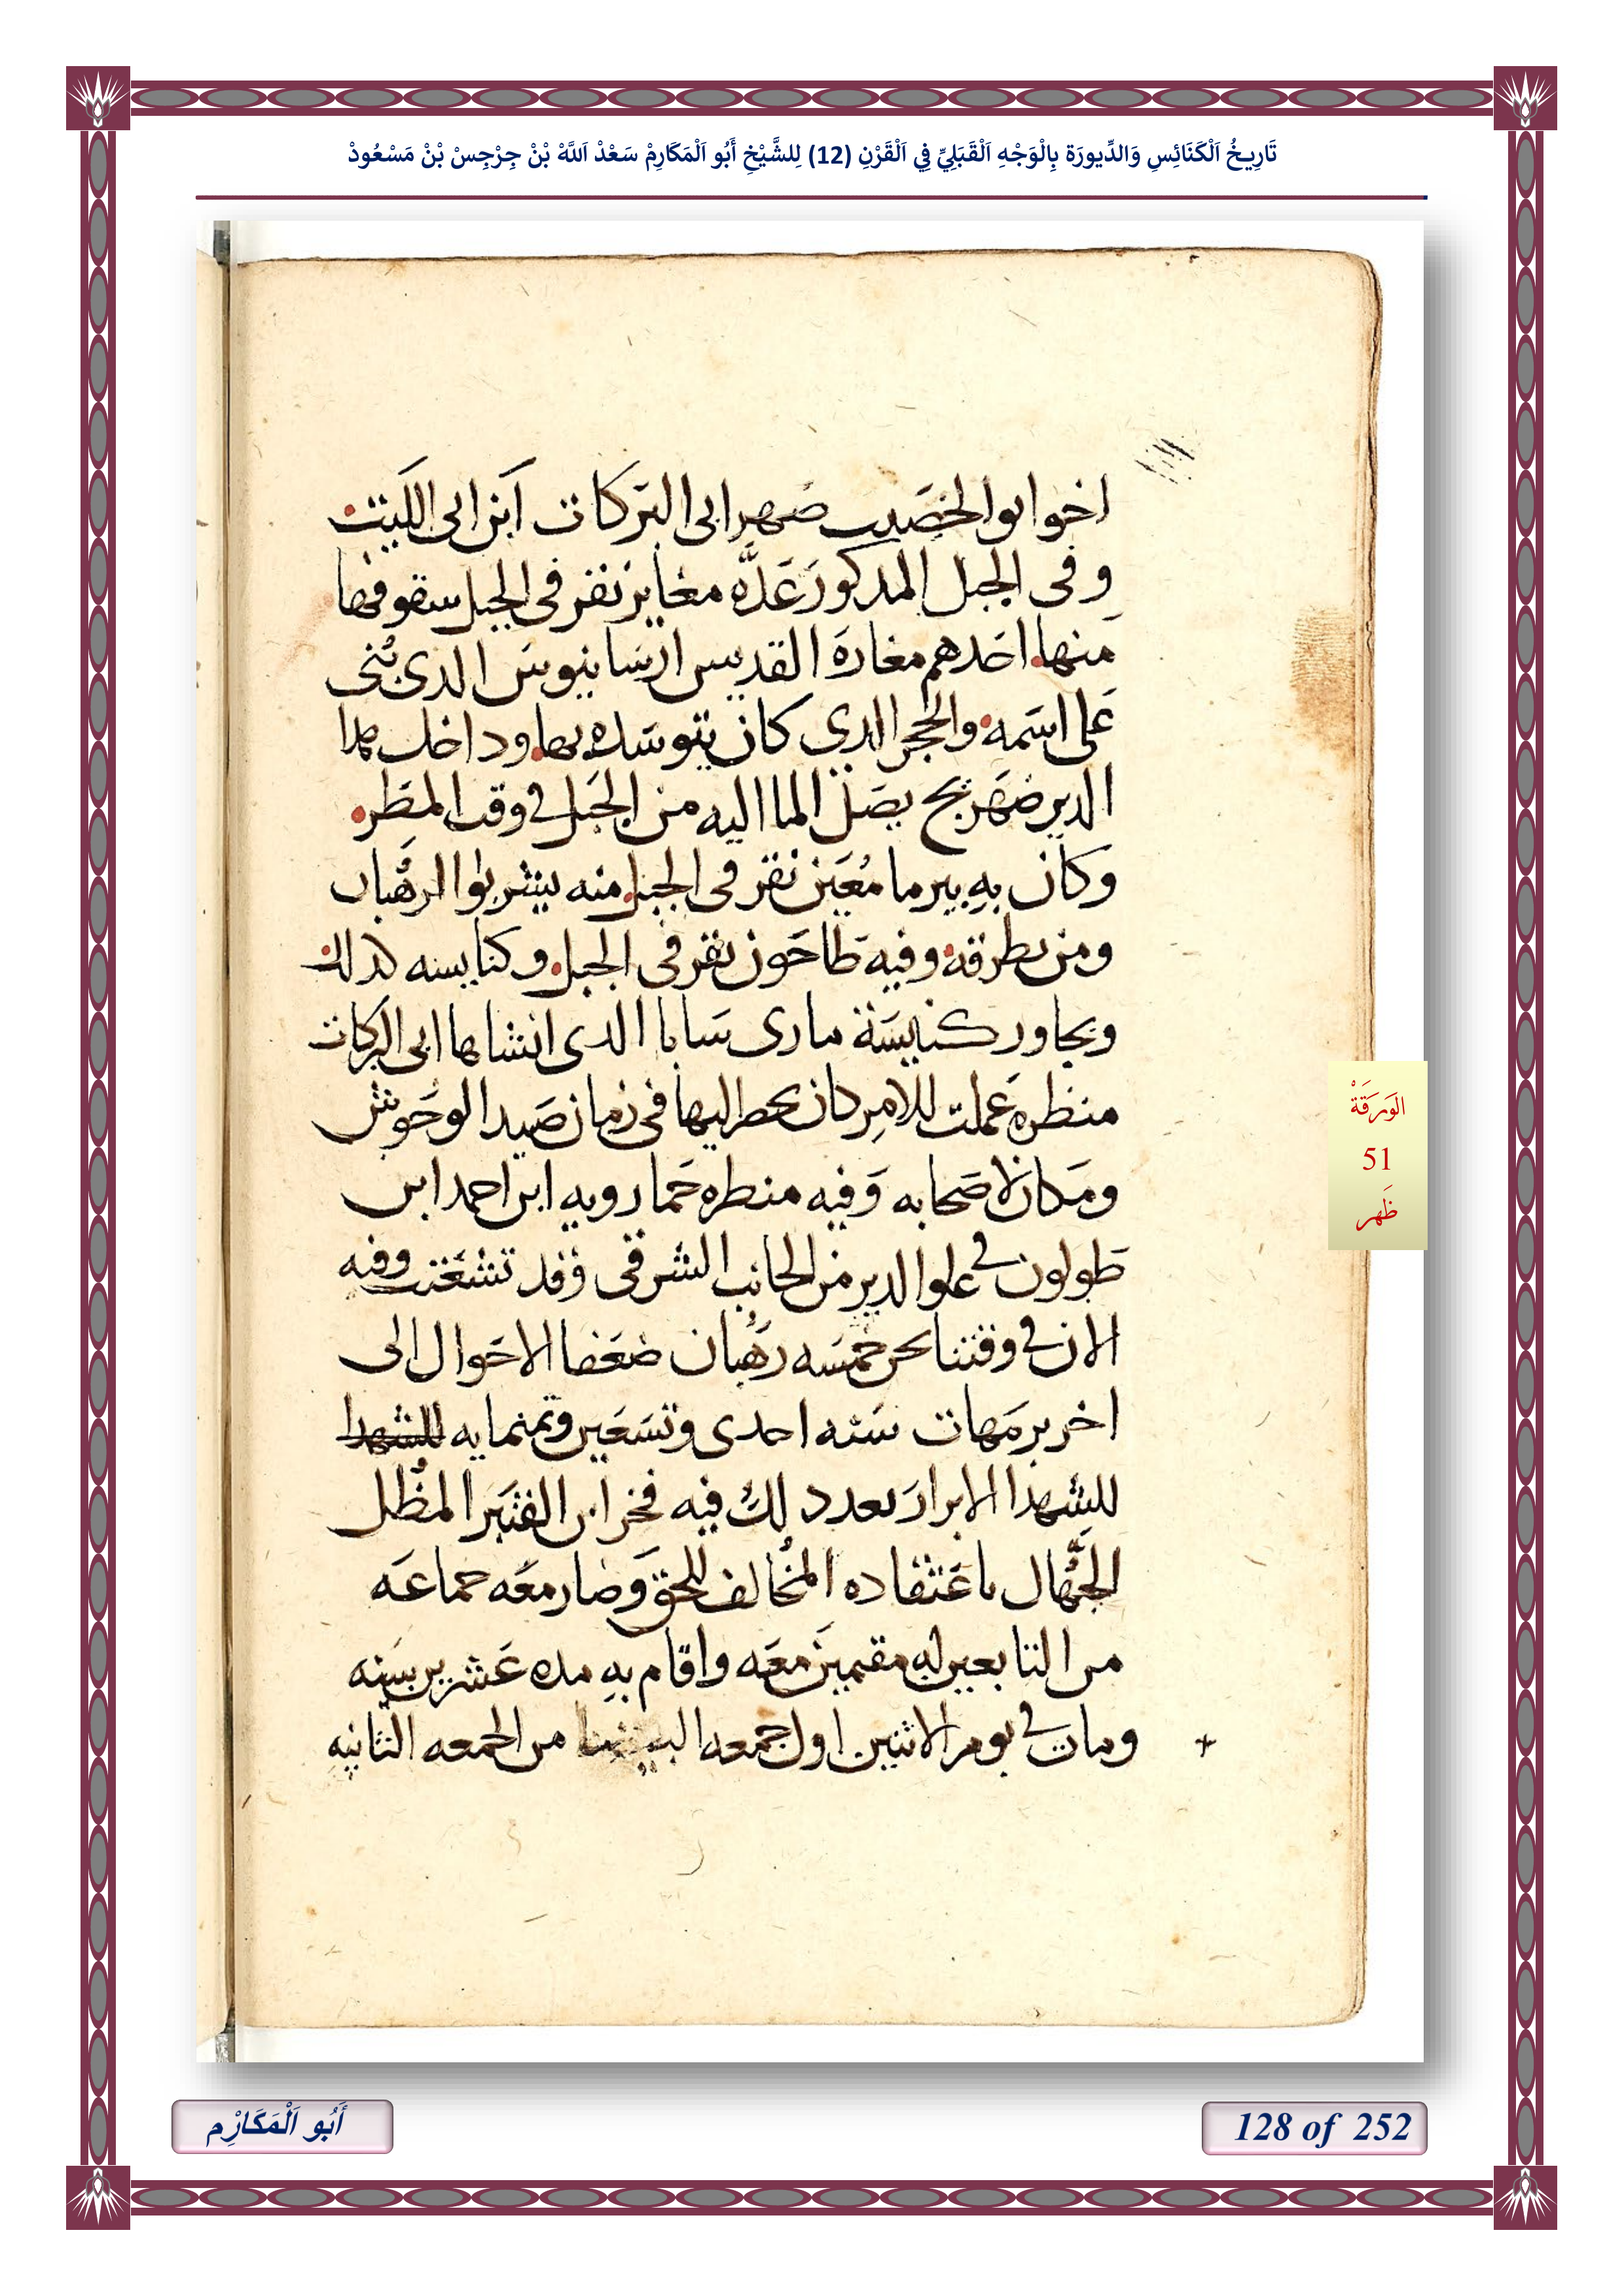 تَارِيخُ اَلْكَنَائِسِ وَالدِّيورَة بِالْوَجْهِ اَلْقَبَلِيِّ فِي اَلْقَرْنِ (12) لِلشَّيْخِ أَبُو اَلْمَكَارِمْ سَعْدْ اَللَّهْ بْنْ جِرْجِسْ بْنْ مَسْعُودْ
اخو ابو الخصيب صهر ابى البركات ابن ابى الليت
وفى الجبل المدكور عده مغاير نقر فى الجبل سقوفها
منها احدهم مغارة القديس ارسانيوس الدى بنى
على اسمه والحجر الدي كان يتوسده بها وداخل هدا
الدير صهريج يصل الما اليه من الجبل فى وقت المطر
وكان به بير ما معين نقر فى الجبل منه يشربوا الرهبان
ومن يطرقه وفيه طاحون نقر فى الجبل وكنايسه كدلك
ويجاور كنيسة مارى سابا الدى انشاها ابى البركات
منظره عملت للامر كان يحط اليها فى زمان صيد الوحوش
ومكان لاصحابه وفيه منظره خمارويه ابن احمد ابن
طولون فى علو الدير من الجانب الشرقى وقد تشعثت وفيه
الان فى وقتنا نحن خمسه رهبان ضعفا الاحوال الى
اخر برمهات سنه احدى وتسعين وثمنمايه للشهدا
للشهدا الابرار بعد دلك فيه فخر ابن القنبر المظل
الجهال باعتقاده المخالف للحق وصار معه جماعه
من التابعين له مقيمين معه واقام به مده عشرين سنه
ومات فى يوم الاثنين اول جمعه من الجمعه الثانيه
الوَرَقَةْ
51
ظَهر
أَبُو اَلْمَكَارِْم
128 of 252